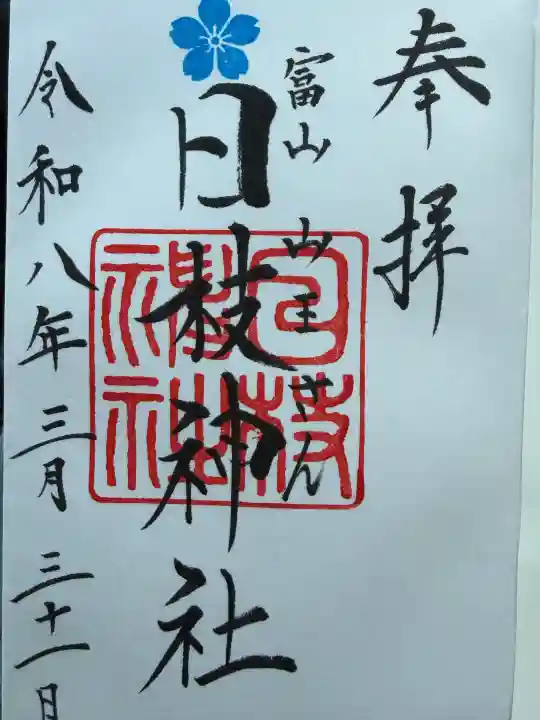 奉拝
富山山王さん
日枝神社
令和八年三月三十一日
日枝神社